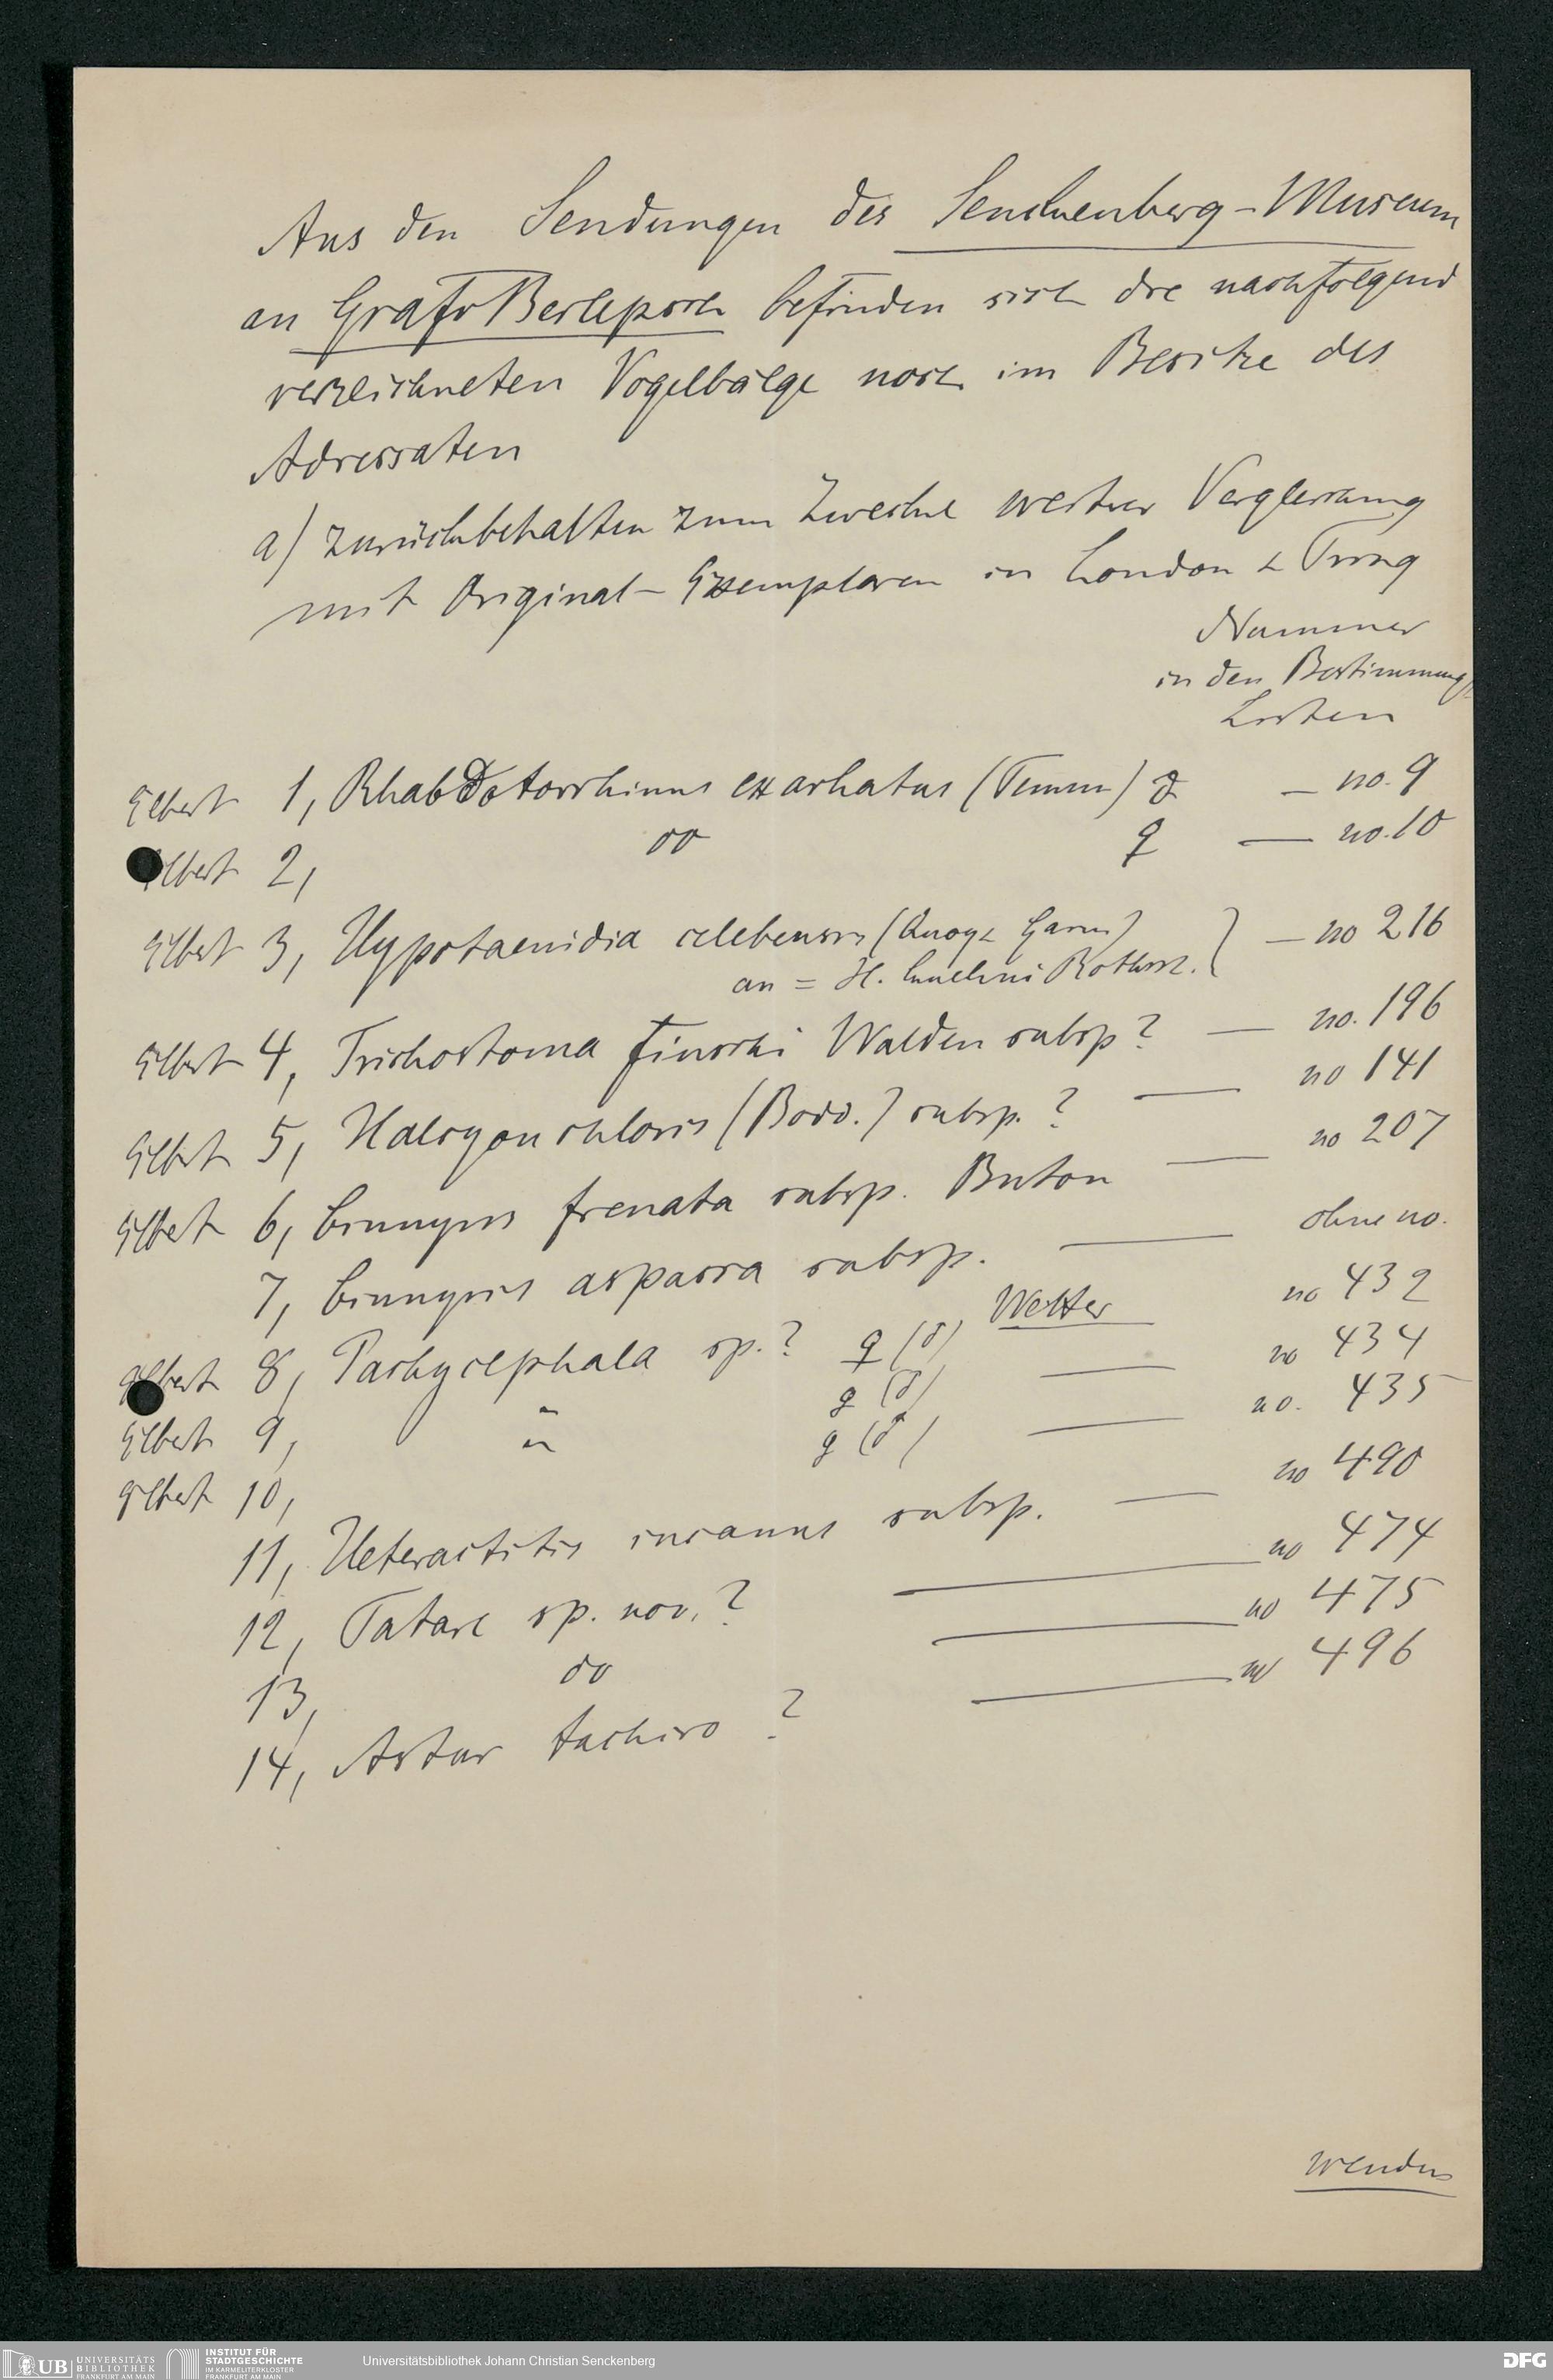 Aus den Sendungen des Senckenberg-Museum
an Graf v Berlepsch befinden sich die nachfolgend
verzeichneten Vogelbälge noch im Besitze des
Adressaten
a) zurückbehalten zum Zwecke weitrer Vergleichung
mit Original-Exemplaren in London & Tring
Nummer
in den Bestimmungs
Listen
Elbert 1, Rhabdotorrhinus exarhatus (Temm) ♂ — no. 9
Elbert 2, do ♀ — no. 10
Elbert 3, Hypotaenidia celebensis (Quoy & Gaim) } — no 216
an = H. Rothsch.
Elbert 4, Trichostoma finschi Walden subsp? — no. 196
Elbert 5, Halcyon chloris (Bodd.) subsp.? — no 141
Elbert 6, Cinnyris frenata subsp. Buton — no 207
7, Cinnyris aspasia subsp. — ohne no.
Elbert 8, Pachycephala sp.? ♀ (♂) Wetter no 432
Elbert 9, " ♀ (♂) — no 434
Elbert 10, " ♀ (♂) — no. 435
11, Heteractitis incanus subsp. — no 490
12, Tatare sp. nov.? — no 474
13, do — no 475
14, Astur tachiro ? — no 496
wenden
UB UNIVERSITÄTS
BIBLIOTHEK
FRANKFURT AM MAIN
INSTITUT FÜR
STADTGESCHICHTE
IM KARMELITERKLOSTER
FRANKFURT AM MAIN
Universitätsbibliothek Johann Christian Senckenberg
DFG